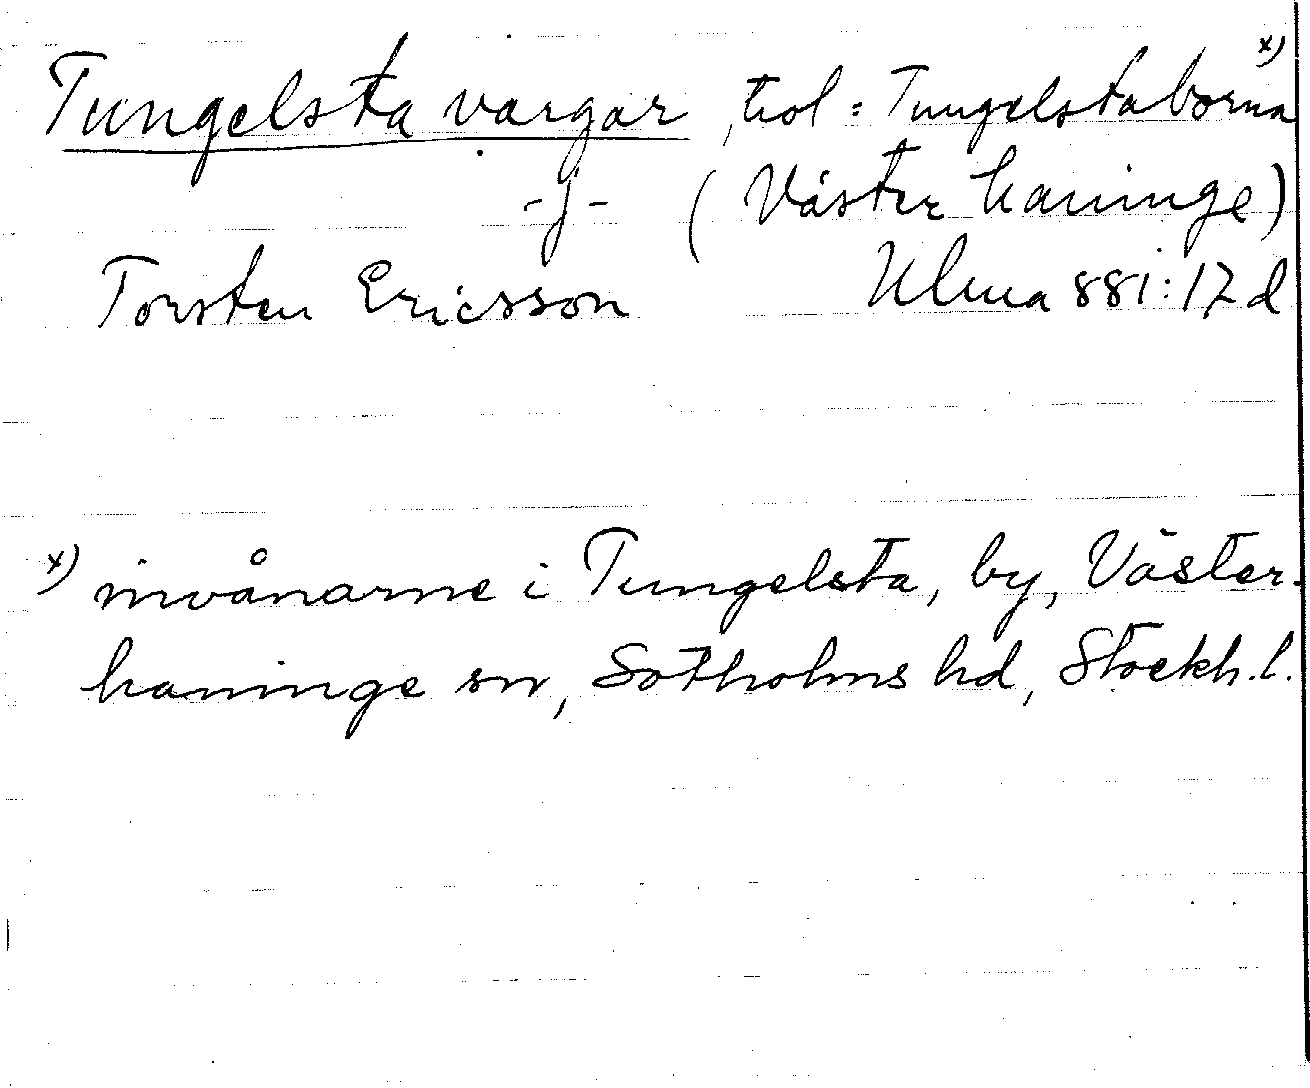 Tungelsta vargar, trol: Tungelstaborna x)
-j- (Västerhaninge)
Torsten Ericsson Ulma 881:12 d
x) invånarne i Tungelsta, by, Väster-
haninge sn, Sotholms hd, Stockh. l.